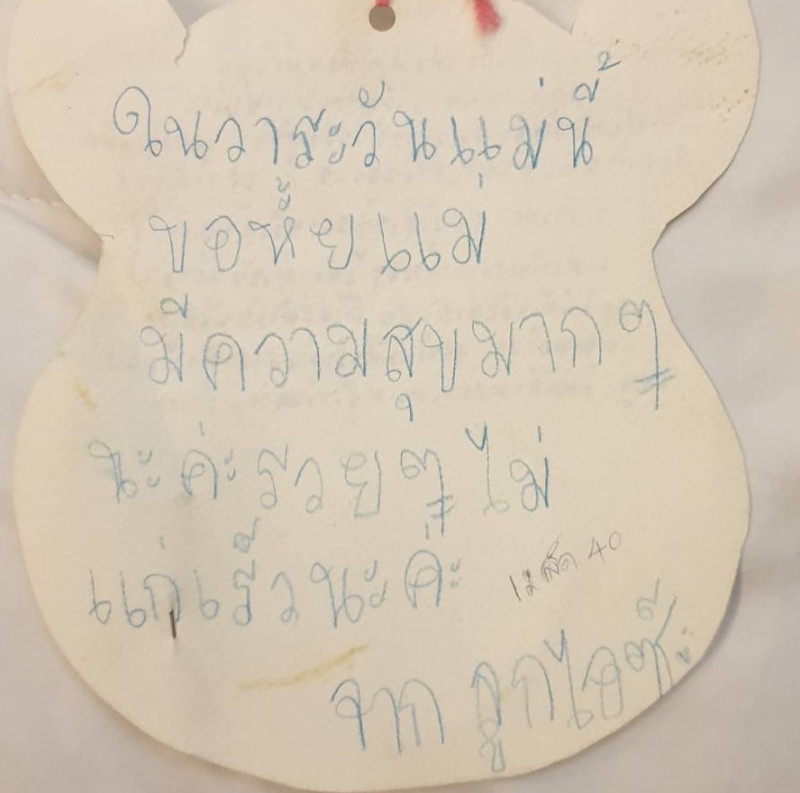 ในวาระวันแม่นี้
ขอห้ัยแม่
มีความสุขมากๆ
นะค่ะรวยๆ ไม่
แก่เร็วนะค่ะ
40
จาก ลูกไอซ์